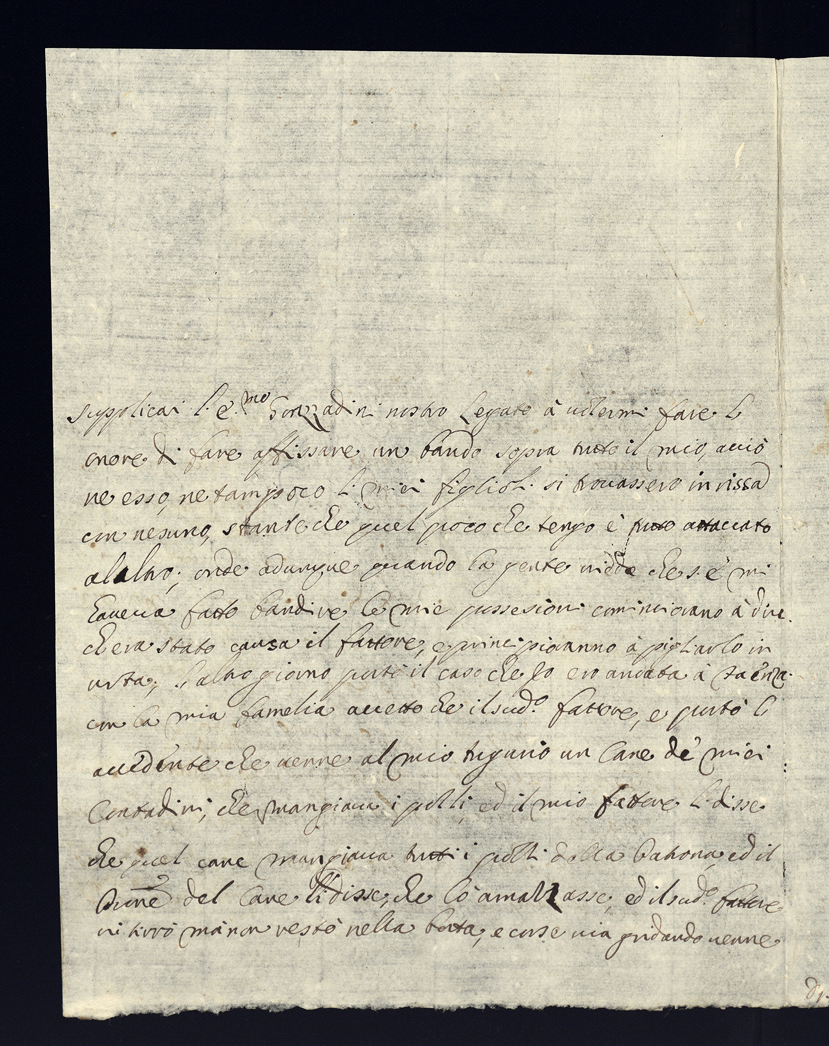 supplicai l'e.mo Gonzadini nostro Legato à uolermi fare l'
onore di fare affissare un bando sopra tutto il mio, acciò
ne esso, ne tampoco li miei figlioli si trouassero in rissa
con nesuno, stante che quel poco che tengo è tutto attaccato
alaltro; onde adunque quando la gente uiede che s'è mi
haueua fatto bandire le mie possesioni cominciorano à dire
chera stato causa il fattore, e principioranno à pigliarlo in
urta; l'altro giorno portò il caso che Io ero andata à Faenza
con la mia famelia accetto che il sud.o fattore, e portò l'
accidente che uenne al mio tugurio un Cane de' miei
Contadini, che mangiaua i polli, ed il mio fattore li disse
che quel cane mangiaua tutti i polli della Patrona, ed il
Pnñe del Cane li disse, che lo amazzasse, ed il sud.o fattore
ui tirò mà non restò nella botta, e corse uia gridando uenne